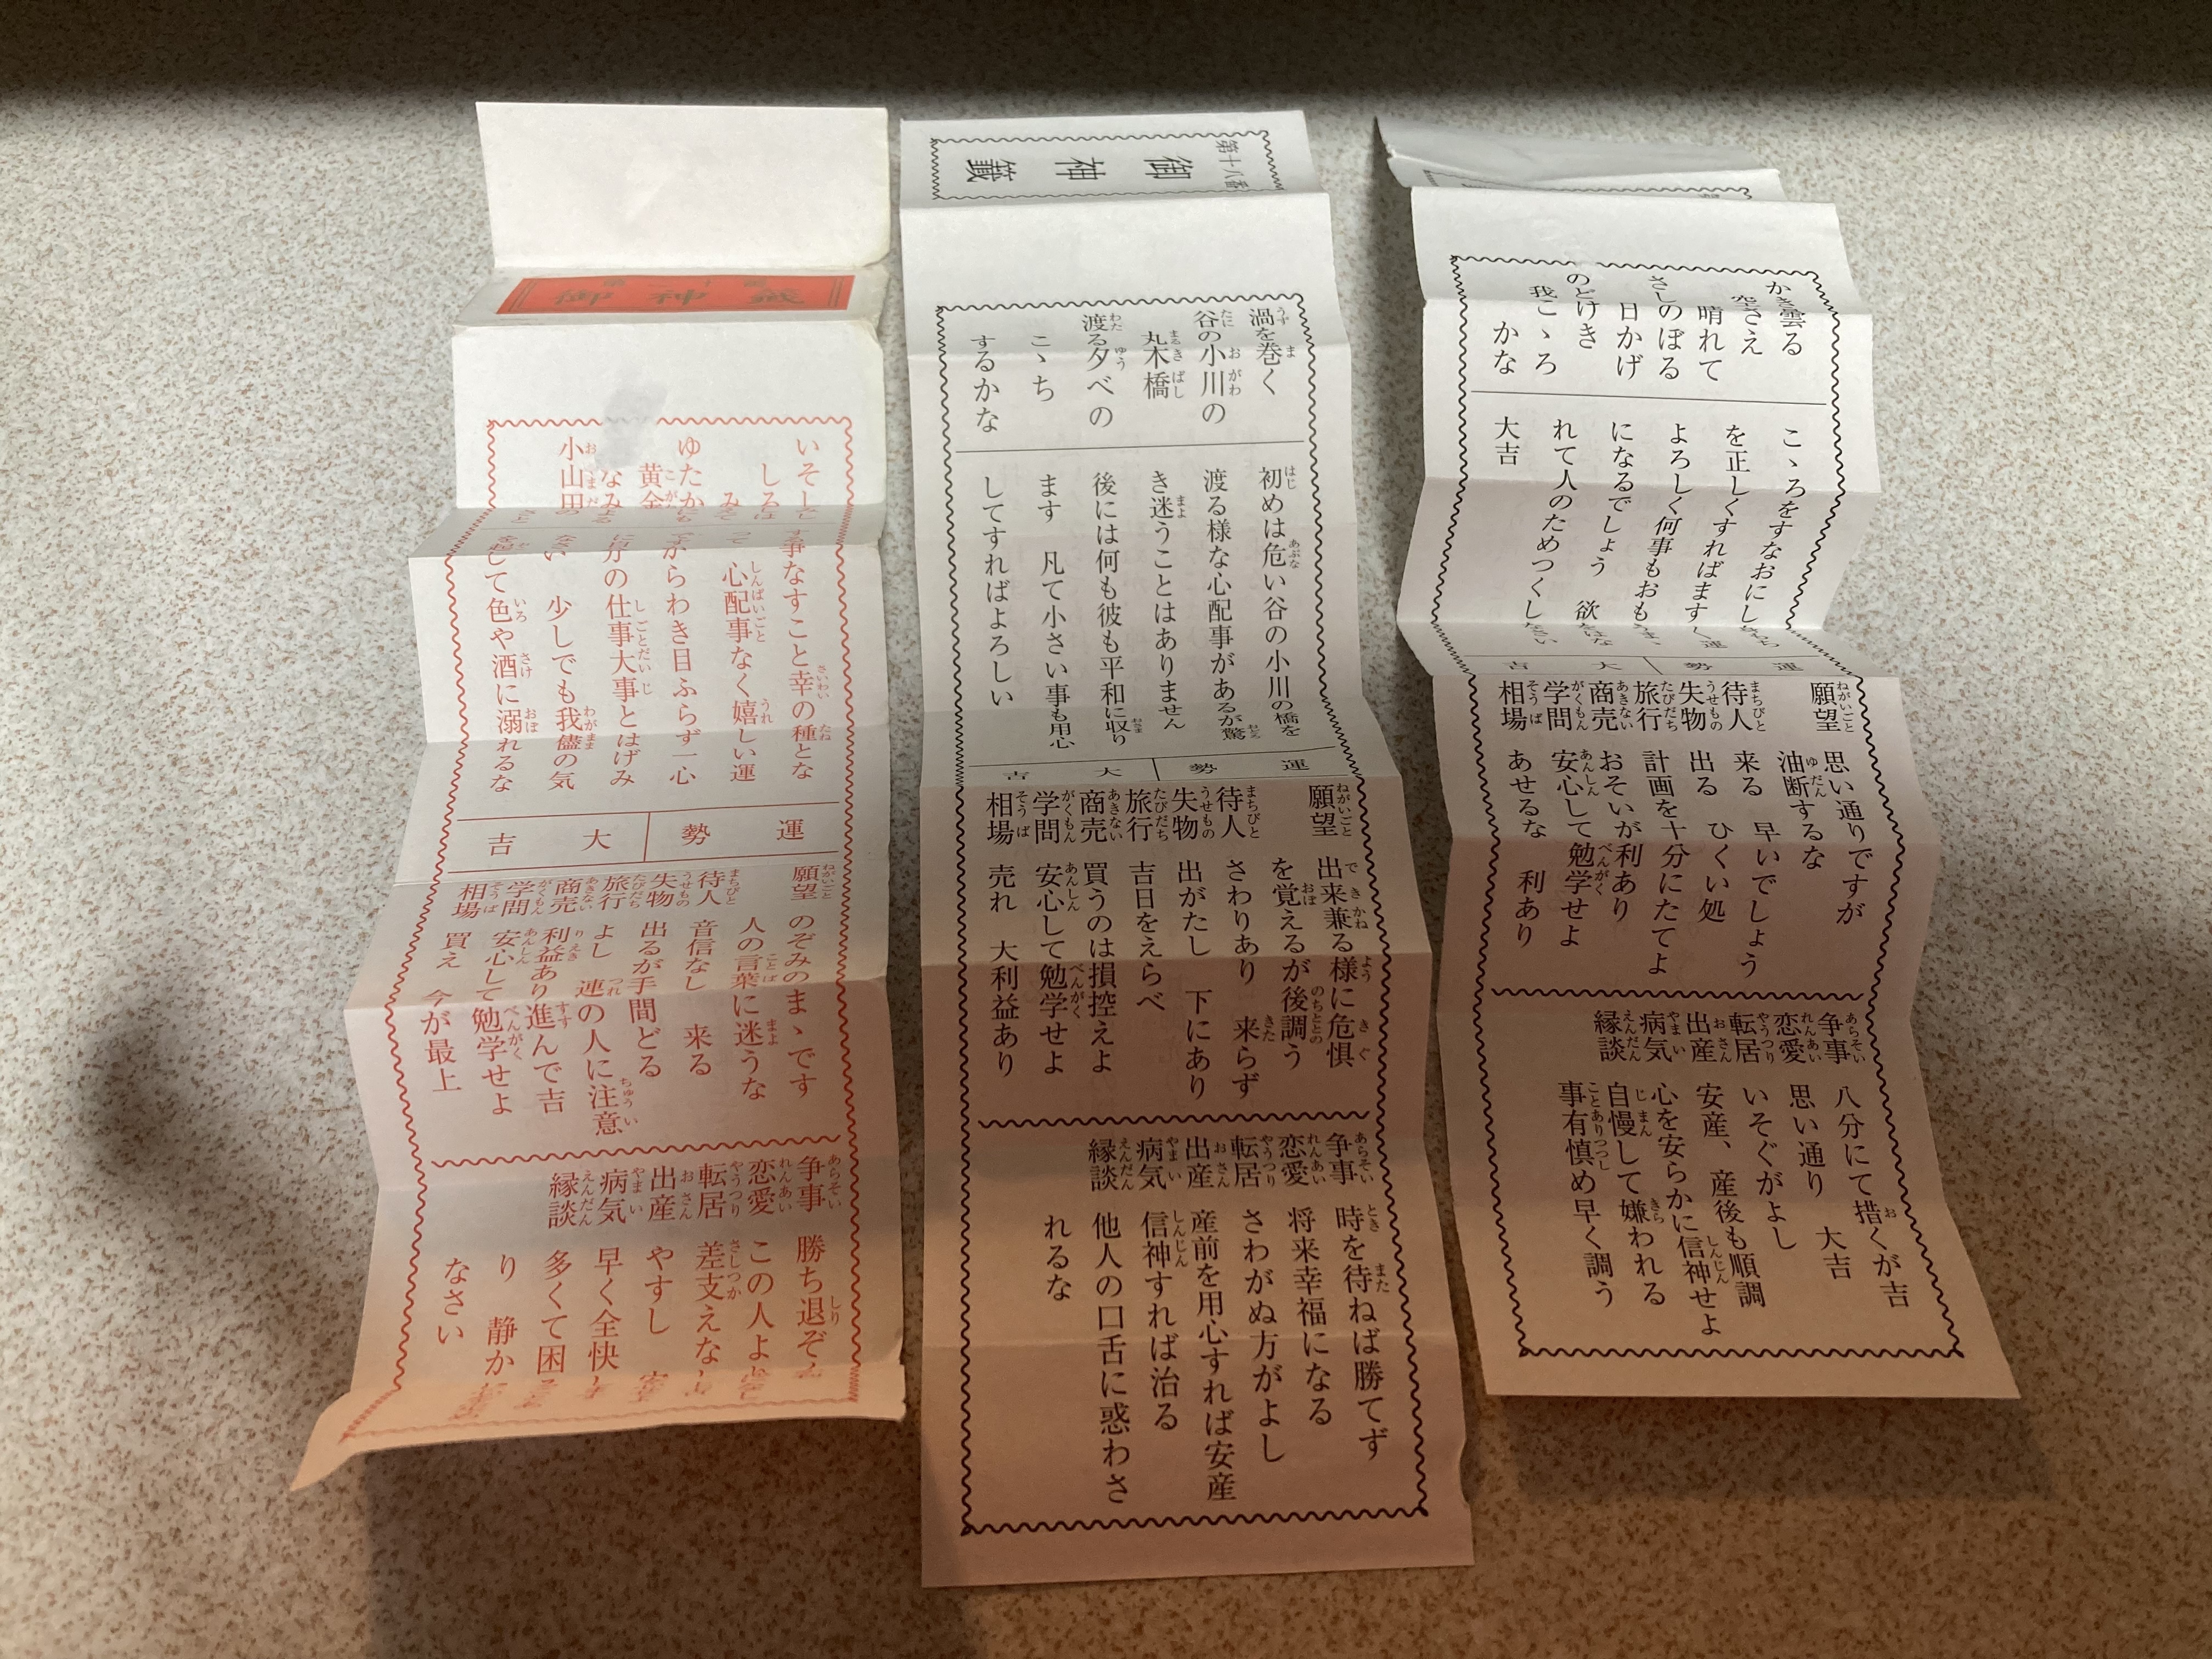 御神籤
いそし
しるは
みえて
ゆたかにも
黄金
なみ
小山田の
事なすこと幸の種とな
心配事なく嬉しい運
からわき目ふらず一心
に自分の仕事大事とはげみ
ない 少しでも我儘の気
を起して色や酒に溺れるな
運勢 大吉
願望 のぞみのまゝです
人の言葉に迷うな
待人 音信なし 来る
失物 出るが手間どる
旅行 よし 連の人に注意
商売 利益あり進んで吉
学問 安心して勉学せよ
相場 買え 今が最上
争事 勝ち退ぞ
恋愛 この人よ
転居 差支えなし
出産 やすし
病気 早く全快
縁談 多くて困
り 静か
なさい
第十八番
御神籤
渦を巻く
谷の小川の
丸木橋
渡る夕べの
こゝち
するかな
初めは危い谷の小川の橋を
渡る様な心配事があるが驚
き迷うことはありません
後には何も彼も平和に収り
ます 凡て小さい事も用心
してすればよろしい
運勢 大吉
願望 出来兼る様に危惧
を覚えるが後調う
待人 さわりあり 来らず
失物 出がたし 下にあり
旅行 吉日をえらべ
商売 買うのは損控えよ
学問 安心して勉学せよ
相場 売れ 大利益あり
争事 時を待ねば勝てず
恋愛 将来幸福になる
転居 さわがぬ方がよし
出産 産前を用心すれば安産
病気 信神すれば治る
縁談 他人の口舌に惑わさ
れるな
かき曇る
空さえ
晴れて
さしのぼる
日かげ
のどけき
我こゝろ
かな
こゝろをすなおにし
を正しくすればます
よろしく何事もおも
になるでしょう 欲
れて人のためつくしなさい
大吉
運勢 大吉
願望 思い通りですが
油断するな
待人 来る 早いでしょう
失物 出る ひくい処
旅行 計画を十分にたてよ
商売 おそいが利あり
学問 安心して勉学せよ
相場 あせるな 利あり
争事 八分にて措くが吉
恋愛 思い通り 大吉
転居 いそぐがよし
出産 安産、産後も順調
病気 心を安らかに信神せよ
縁談 自慢して嫌われる
事有慎め早く調う